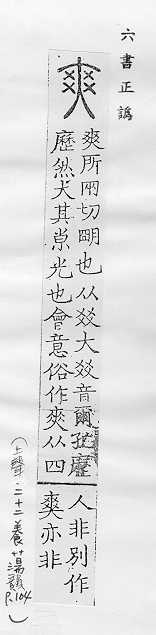 六書正譌
爽
爽所兩切明也从㸚大㸚音爾
歷然大其光也會意俗作爽从四
人非別作
爽亦非
(上聲.二十二養蕩韻
P.104)